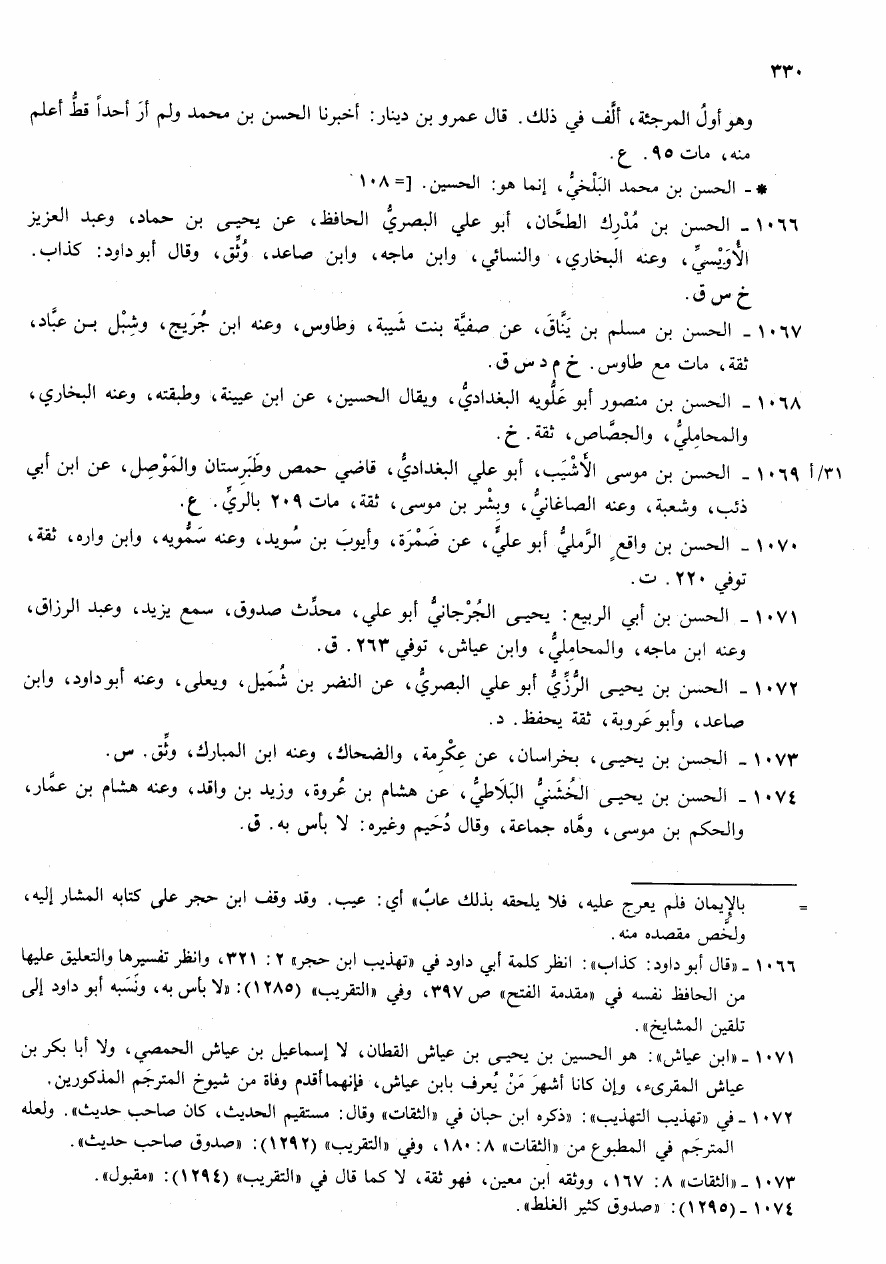 ٣٣٠
وهو أولُ المرجئة، ألَّف في ذلك. قال عمرو بن دينار: أخبرنا الحسن بن محمد ولم أرَ أحداً قطُّ أعلم
منه، مات ٩٥. ع.
* - الحسن بن محمد البَلْخيُّ، إنما هو: الحسين. [= ١٠٨
١٠٦٦ - الحسن بن مُدْرِك الطحَّان، أبو علي البصريُّ الحافظ، عن يحيى بن حماد، وعبد العزيز
الأُوَيْسيِّ، وعنه البخاري، والنسائي، وابن ماجه، وابن صاعد، وُثِّق، وقال أبو داود: كذاب.
خ س ق.
١٠٦٧ - الحسن بن مسلم بن يَنَّاقَ، عن صفيَّة بنت شَيبة، وطاوس، وعنه ابن جُرَيج، وشِبْل بن عبَّاد،
ثقة، مات مع طاوس. خ م د س ق.
١٠٦٨ - الحسن بن منصور أبو عَلُّويه البغداديُّ، ويقال الحسين، عن ابن عيينة، وطبقته، وعنه البخاري،
والمحامِليُّ، والجصَّاص، ثقة. خ.
٣١/أ ١٠٦٩ - الحسن بن موسى الأَشْيَب، أبو علي البغداديُّ، قاضي حمص وطَبَرِستان والمَوْصِل، عن ابن أبي
ذئب، وشعبة، وعنه الصاغانيُّ، وبِشْر بن موسى، ثقة، مات ٢٠٩ بالريِّ. ع.
١٠٧٠ - الحسن بن واقع ٍ الرَّمليُّ أبو عليٍّ، عن ضَمْرَة، وأيوبَ بن سُويد، وعنه سَمُّويه، وابن واره، ثقة،
توفي ٢٢٠. ت.
١٠٧١ - الحسن بن أبي الربيع: يحيى الجُرْجانيُّ أبو علي، محدِّث صدوق، سمع يزيد، وعبد الرزاق،
وعنه ابن ماجه، والمحامِليُّ، وابن عياش، توفي ٢٦٣. ق.
١٠٧٢ - الحسن بن يحيى الرُّزِّيُّ أبو علي البصريُّ، عن النضر بن شُمَيل، ويعلى، وعنه أبو داود، وابن
صاعد، وأبو عَروبة، ثقة يحفظ. د.
١٠٧٣ - الحسن بن يحيى، بخراسان، عن عِكْرِمة، والضحاك، وعنه ابن المبارك، وثِّق. س.
١٠٧٤ - الحسن بن يحيى الخُشَنيُّ البَلَاطيُّ، عن هشام بن عُروة، وزيد بن واقد، وعنه هشام بن عمَّار،
والحكم بن موسى، وهَّاه جماعة، وقال دُحَيم وغيره: لا بأس به. ق.
= بالإيمان فلم يعرج عليه، فلا يلحقه بذلك عابٌ» أي: عيب. وقد وقف ابن حجر على كتابه المشار إليه،
ولخَّص مقصده منه.
١٠٦٦ - «قال أبو داود: كذاب»: انظر كلمة أبي داود في «تهذيب ابن حجر» ٢: ٣٢١، وانظر تفسيرها والتعليق عليها
من الحافظ نفسه في «مقدمة الفتح» ص ٣٩٧، وفي «التقريب» (١٢٨٥): «لا بأس به، ونَسَبه أبو داود إلى
تلقين المشايخ».
١٠٧١ - «ابن عياش»: هو الحسين بن يحيى بن عياش القطان، لا إسماعيل بن عياش الحمصي، ولا أبا بكر بن
عياش المقرىء، وإن كانا أشهرَ مَنْ يُعرف بابن عياش، فإنهما أقدم وفاة من شيوخ المترجَم المذكورين.
١٠٧٢ - في «تهذيب التهذيب»: «ذكره ابن حبان في «الثقات» وقال: مستقيم الحديث، كان صاحب حديث». ولعله
المترجَم في المطبوع من «الثقات» ٨: ١٨٠، وفي «التقريب» (١٢٩٢): «صدوق صاحب حديث».
١٠٧٣ - «الثقات» ٨: ١٦٧، ووثقه ابن معين، فهو ثقة، لا كما قال في «التقريب» (١٢٩٤): «مقبول».
١٠٧٤ - (١٢٩٥): «صدوق كثير الغلط».